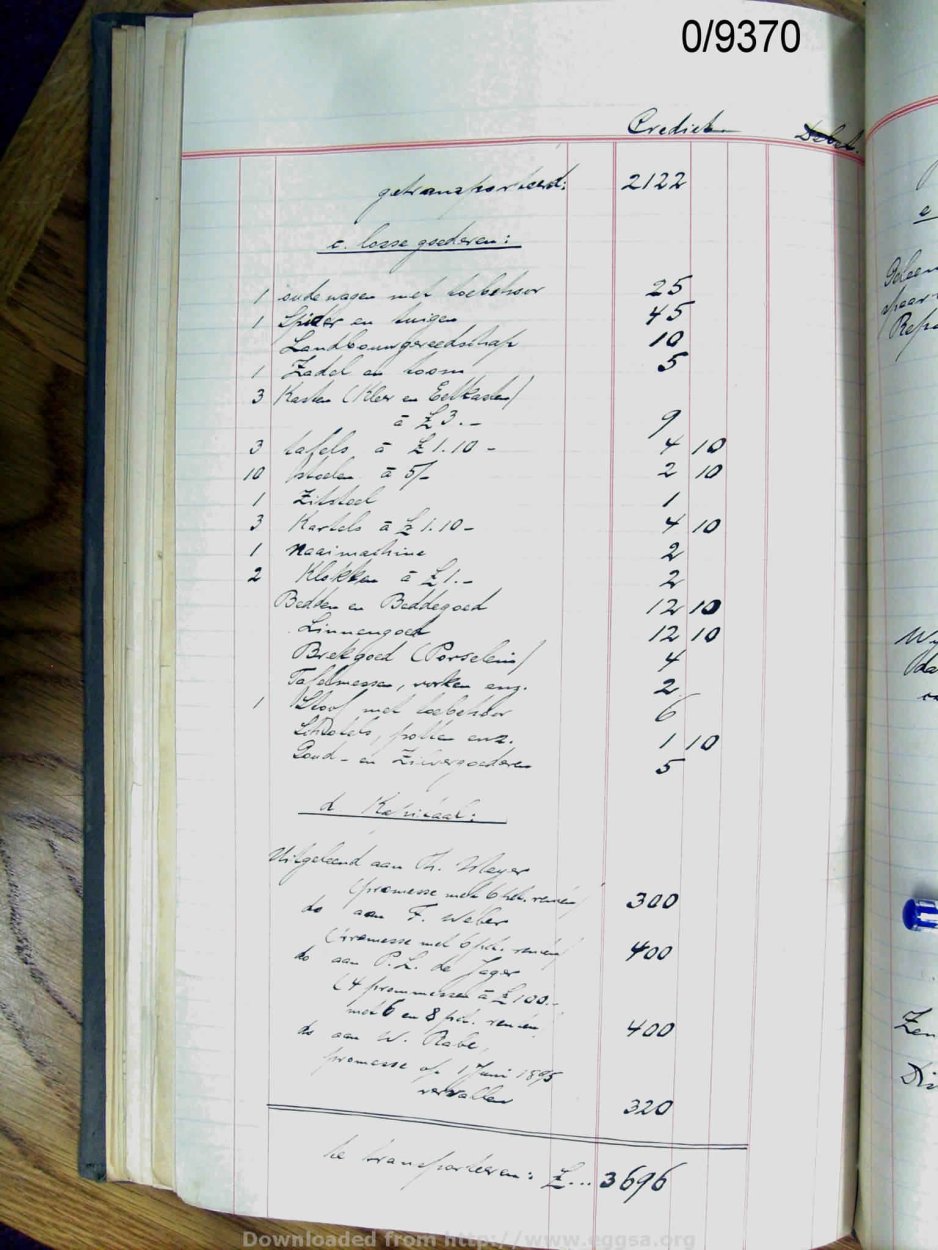 0/9370
Crediet Debet.
getransporteerd: 2122
c. losse goederen:
1 oude wagen met toebehoor 25
1 Spider en tuigen 45
Landbouwgereedschap 10
1 Zadel en toom 5
3 Kasten (Kler en Eetkasten)
à £3.- 9
3 tafels à £1.10- 4 10
10 stoelen à 5/- 2 10
1 Zitstoel 1
3 Kartels à £1.10- 4 10
1 Naaimachine 2
2 Klokken à £1.- 2
Bedden en Beddegoed 12 10
Linnengoed 12 10
Brekgoed (Porselein) 4
Tafelmessen, vorken enz. 2
1 Stoof met toebehoor 6
Schotels, potten enz. 1 10
Goud- en Zilvergoederen 5
d. Kapitaal:
Uitgeleend aan Th. Meyer
(promesse met 6 pct. renten) 300
do aan F. Weber
(promesse met 6 pct. renten) 400
do aan P.L. de Jager
(4 promessen à £100.-
met 6 en 8 pct. renten 400
do aan W. Rabe,
promesse op 1 Juni 1895
vervallen 320
te transporteeren: £... 3696
e
Geleen
Repa
Wy
da
Zen
Di
Downloaded from http://www.eggsa.org